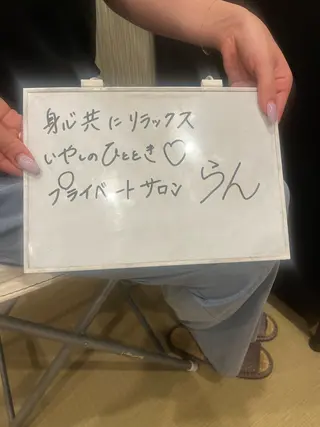 身心共にリラックス
いやしのひととき♡
プライベートサロン らん